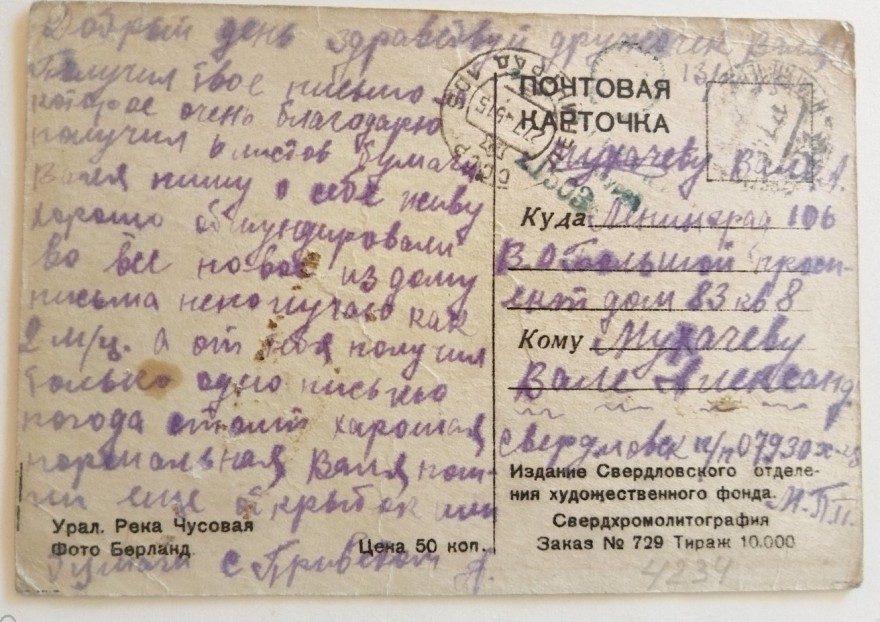 Добрый день здравствуй дружочек Валя
Получил твое письмо
которое очень благодарю
получил листов бумаги
Валя пишу о себе живу
хорошо обмундировали
во все новое из дому
письма неполучаю как
2 м/ц. А от тебя получил
только одно письмо
погода стоит харошая
нормальная, Валя пош-
ли еще открыток или
бумаги с Приветом
ПОЧТОВАЯ
КАРТОЧКА
Мухачеву Вале А.
Куда Ленинград 106
В.О Большой прос-
пект дом 83 кв 8
Кому Мухачеву
Вале Александ
Свердловск п/п 07930
М.П.П.
Издание Свердловского отделе-
ния художественного фонда.
Свердхромолитография
Заказ № 729 Тираж 10.000
Урал. Река Чусовая
Фото Берланд.
Цена 50 коп.
4234